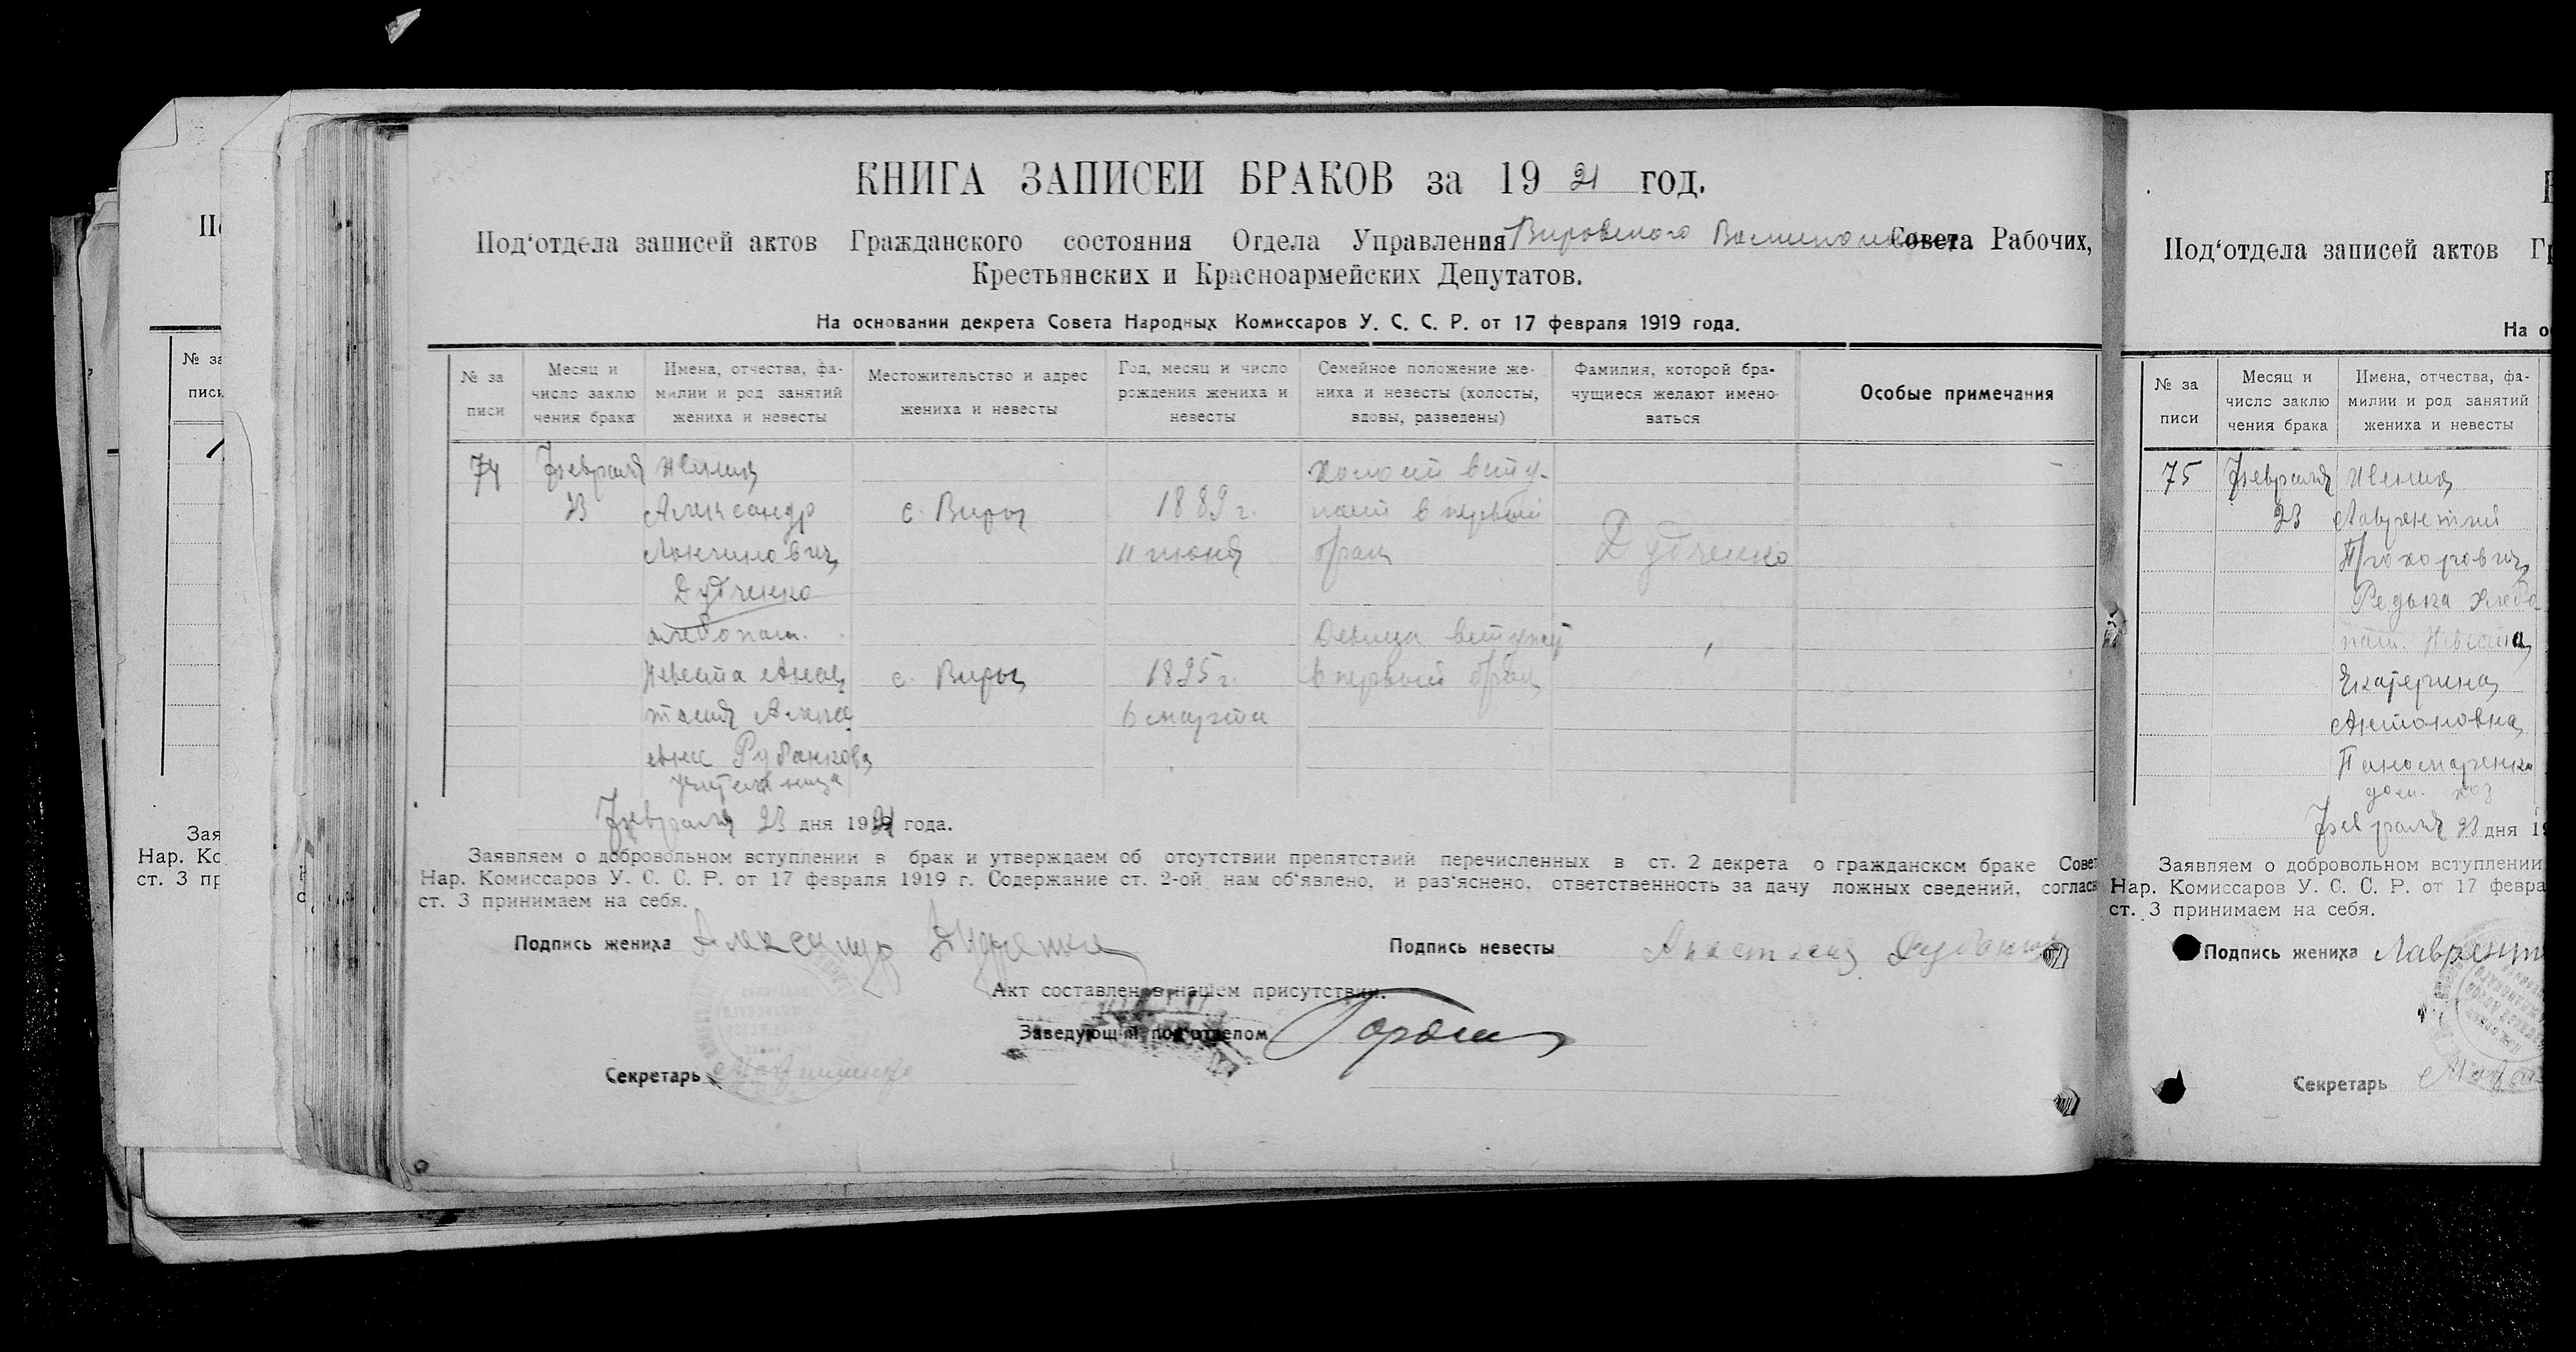 КНИГА ЗАПИСЕЙ БРАКОВ за 1921 год.
Под‘отдела записей актов Гражданского состояния Отдела Управления Вировского Совета Рабочих,
Крестьянских и Красноармейских Депутатов.
На основании декрета Совета Народных Комиссаров У. С. С. Р. от 17 февраля 1919 года.
№ за писи
Месяц и число заклю чения брака
Имена, отчества, фа- милии и род занятий жениха и невесты
Местожительство и адрес жениха и невесты
Год, месяц и число рождения жениха и невесты
Семейное положение же- ниха и невесты (холосты, вдовы, разведены)
Фамилия, которой бра- чущиеся желают имено- ваться
Особые примечания
74 Февраля Жених Холост всту-
23 Александр с. Виры 1889 г. пает в первый
11 июня брак Дудченко
Дудченко
хлебопаш. Девица вступает
Невеста Анас с. Виры 1895 г. в первый брак
тасия Алексе 6 марта
евна Рубанкова
учительница
Февраля 23 дня 1921 года.
Заявляем о добровольном вступлении в брак и утверждаем об отсутствии препятствий перечисленных в ст. 2 декрета о гражданском браке Совет
Нар. Комиссаров У. С. С. Р. от 17 февраля 1919 г. Содержание ст. 2-ой нам об‘явлено, и раз‘яснено, ответственность за дачу ложных сведений, соглас
ст. 3 принимаем на себя.
Подпись жениха Александр Дудченко Подпись невесты Анастасия
Акт составлен в нашем присутствии.
Заведующий под‘отделом
Секретарь
Под‘отдела записей актов Гр
На о
№ за писи
Месяц и число заклю чения брака
Имена, отчества, фа- милии и род занятий жениха и невесты
75 Февраля Жених
23 Лаврентий
Прохорович
Редька хлебо
паш. Невеста
Екатерина
Антоновна
Пономаренко
дом. хоз
Февраля 23 дня 19
Заявляем о добровольном вступлении
Нар. Комиссаров У. С. С. Р. от 17 февра
ст. 3 принимаем на себя.
Подпись жениха Лаврент
Секретарь
№ за
писи
Зая
Нар. Ко
ст. 3 пр